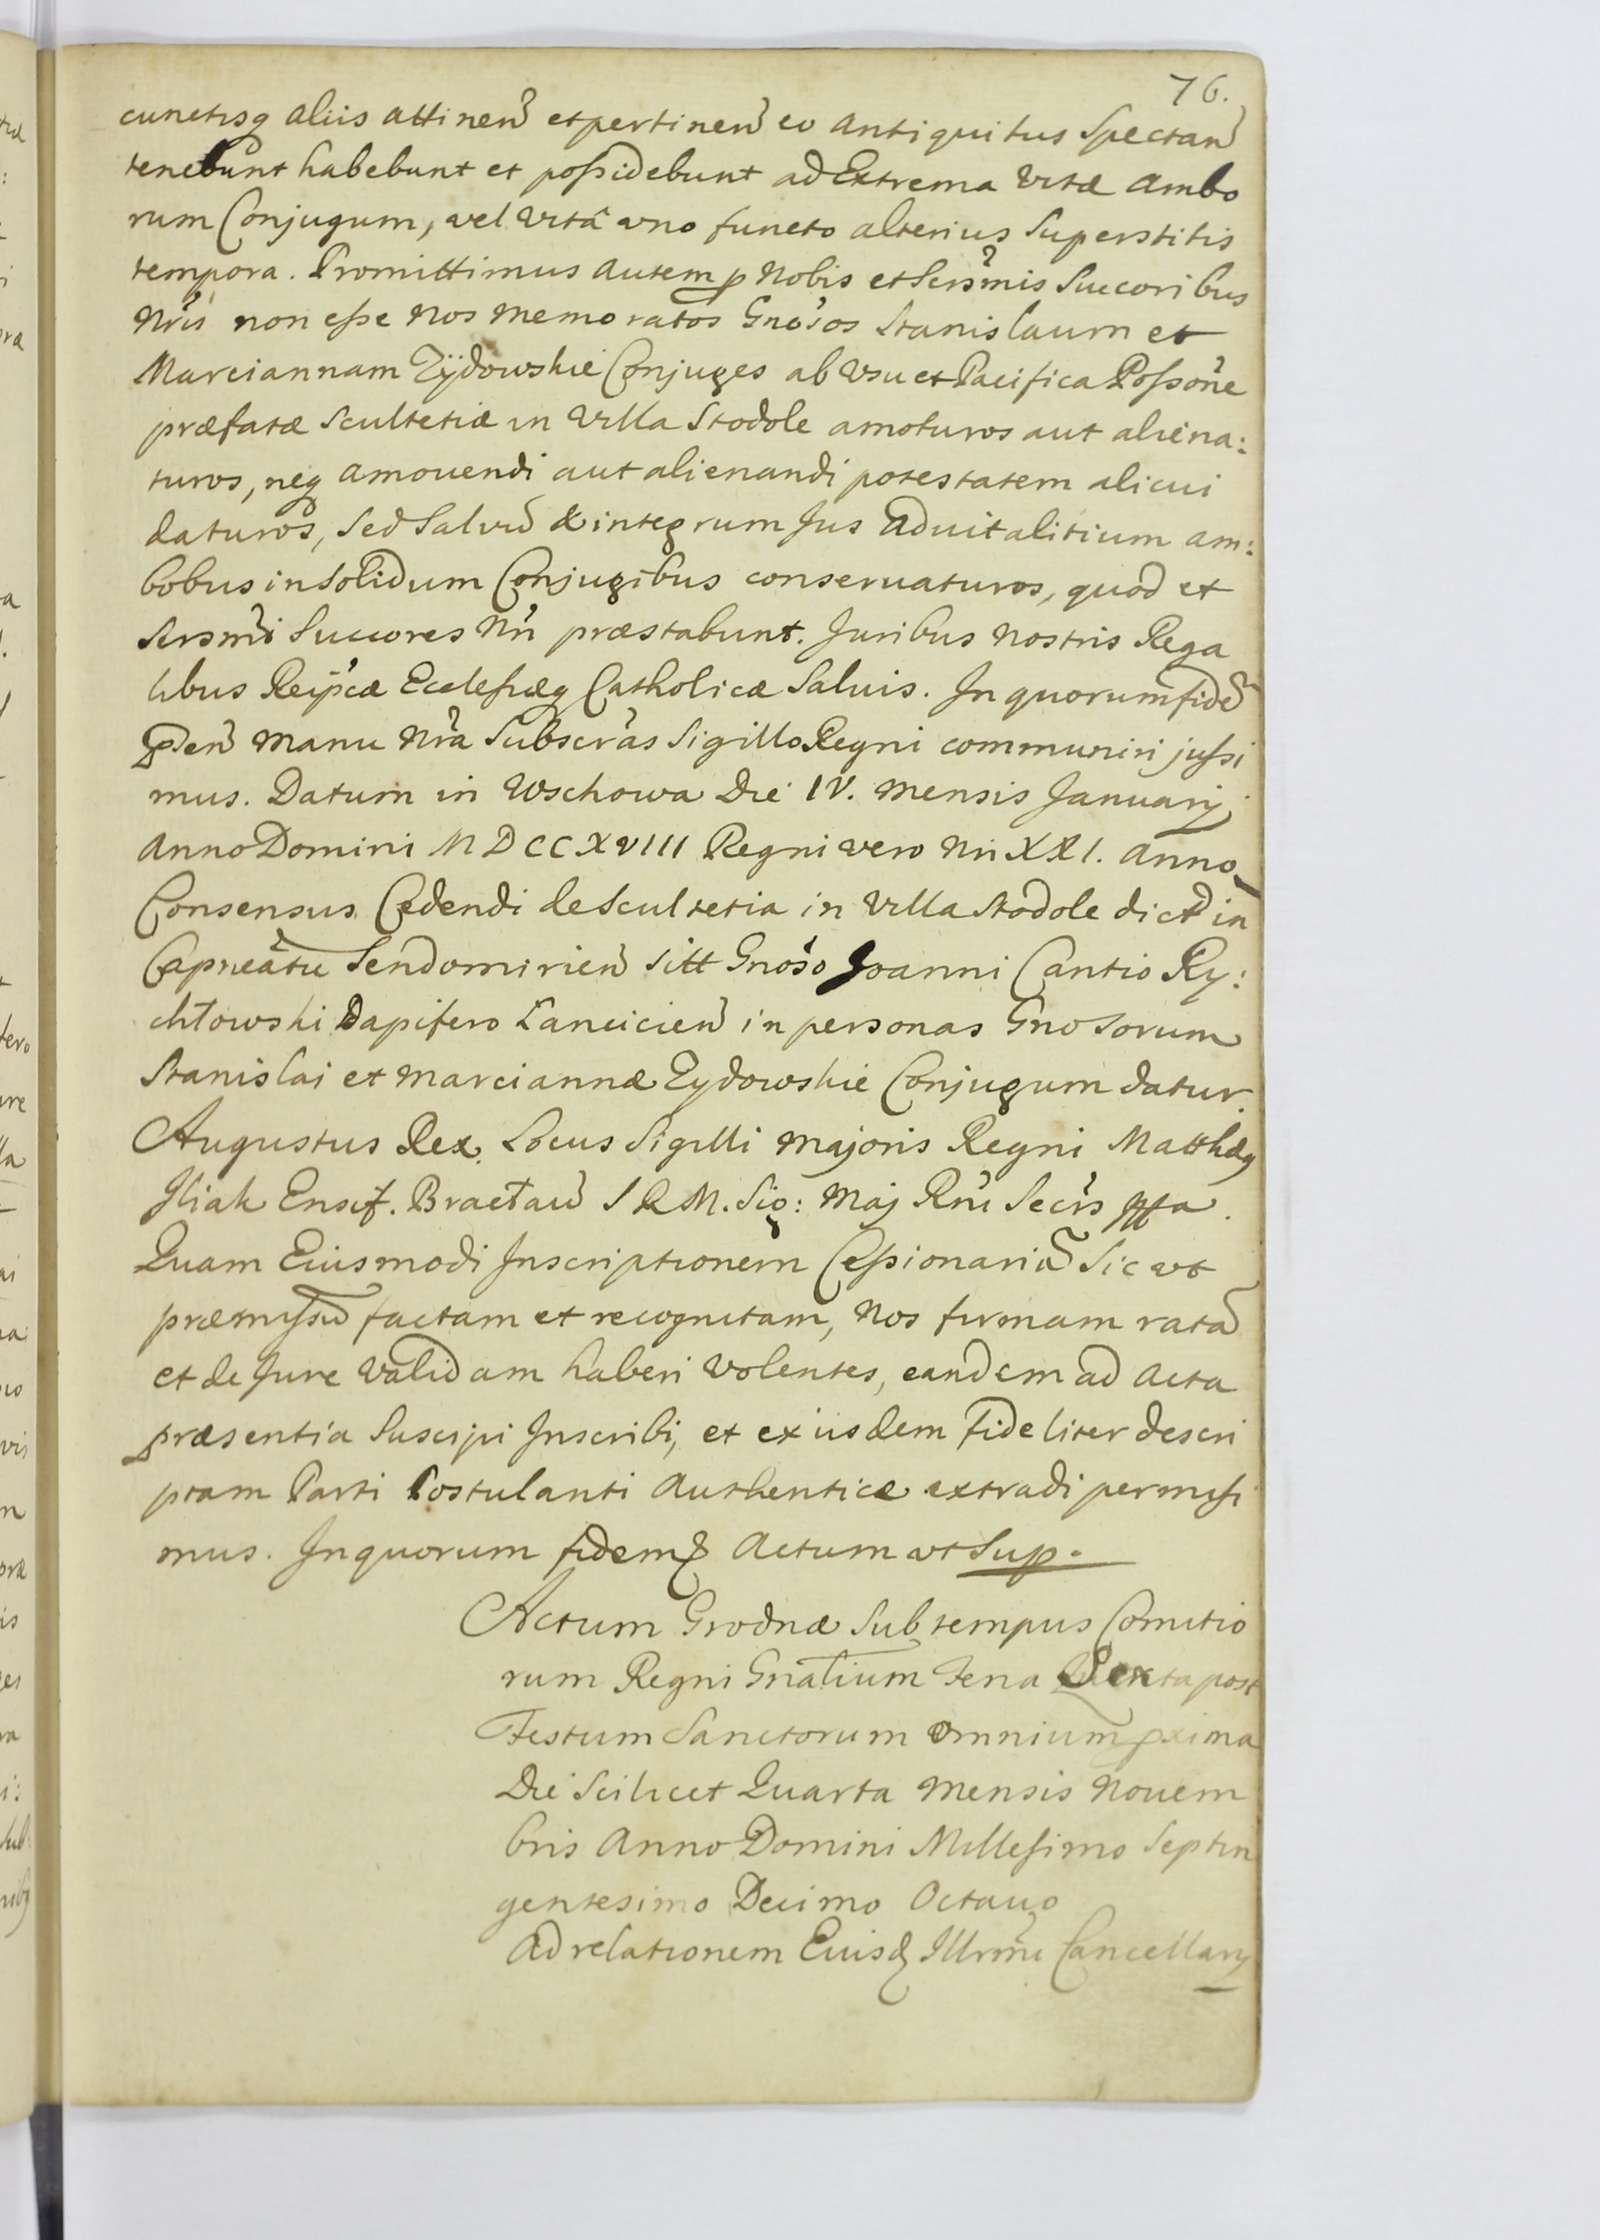 76.
cunctisq aliis attinen̄ et pertinen̄ eo antiquitus Spectan̄
tenebunt habebunt et possidebunt ad Extrema Vitæ ambo
rum Conjugum, vel Vitâ uno functo alterius Superstitis
tempora. Promittimus autem p Nobis et Sersm̄is Succoribus
Nrīs non esse Nos memoratos Gnōsos Stanislaum et
Marciannam Zÿdowskie Conjuges ab Usu et Pacifica Possōne
præfatæ Scultetiæ in Villa Stodole amoturos aut aliena:
turos, neq amouendi aut alienandi potestatem alicui
daturos, Sed Salvū & integrum Jus aduitalitium am:
bobus in Solidum Conjugibus conseruaturos, quod et
Sersmī Succores Nrī præstabunt. Juribus nostris Rega
libus Reipcæ Ecclesiæq Catholicæ Saluis. In quorum fidē
pſen̄ manu Nrā Subscrās Sigillo Regni communiri jussi
mus. Datum in Wschowa Die IV. mensis Januarij
Anno Domini MDCCXVIII Regni vero Nri XXI. anno
Consensus Cedendi de Scultetia in Villa Stodole dict in
Capneātu Sendomirien̄ Sitt Gnōso Joanni Cantio Ry:
chłowski Dapifero Łancicien̄ in personas Gnosorum
Stanislai et Marciannæ Zydowskie Conjugum datur.
Augustus Rex. Locus Sigilli majoris Regni Matthæq
Iliak Ensif. Bracłau S R M. Sig: Maj Rnī Secrs
Quam Eiusmodi Inscriptionem Cessionariā Sic ut
præmissū factam et recognitam, Nos firmam ratā
et de Jure Validam haberi Volentes, eandem ad Acta
præsentia Suscipi Inscribi, et ex iisdem fideliter descri
ptam Parti Postulanti Authenticæ extradi permisi
mus. In quorum fidem Actum ut Sup.
Actum Grodnæ Sub tempus Comitio
rum Regni Gnalium Feria Sexta post
Festum Sanctorum Omnium pxima
Die Scilicet Quarta Mensis Nouem
bris Anno Domini Millesimo Septin
gentesimo Decimo Octauo
Ad relationem Eiusd Illrmī Cancellarij